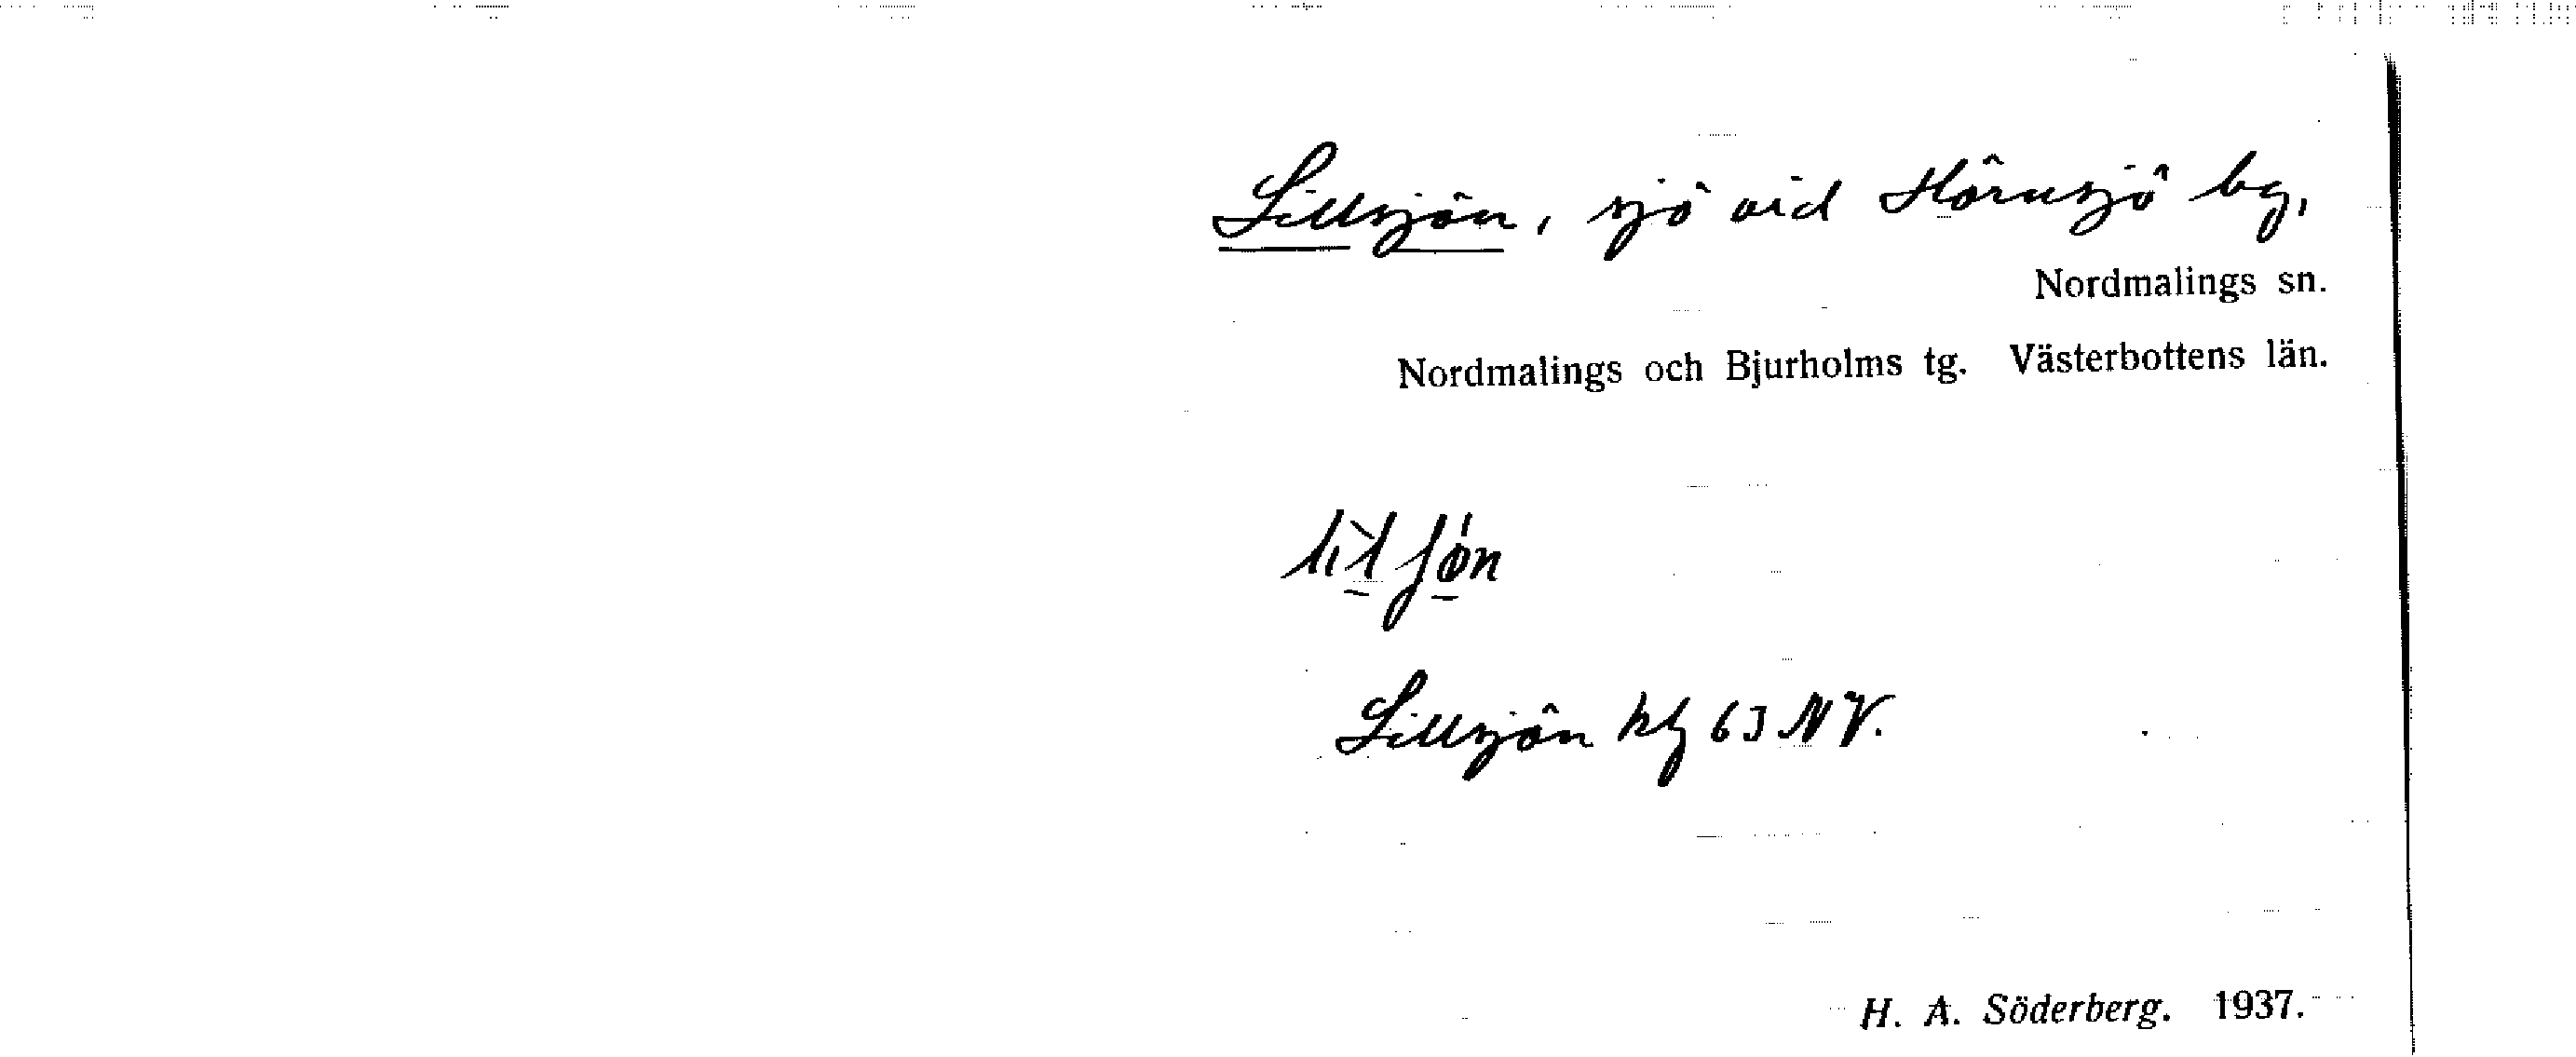 Lillsjön, sjö vid Hörnsjö by,
Nordmalings sn.
Nordmalings och Bjurholms tg. Västerbottens län.
Lillsjön kbl 63 NV.
H. A. Söderberg. 1937.